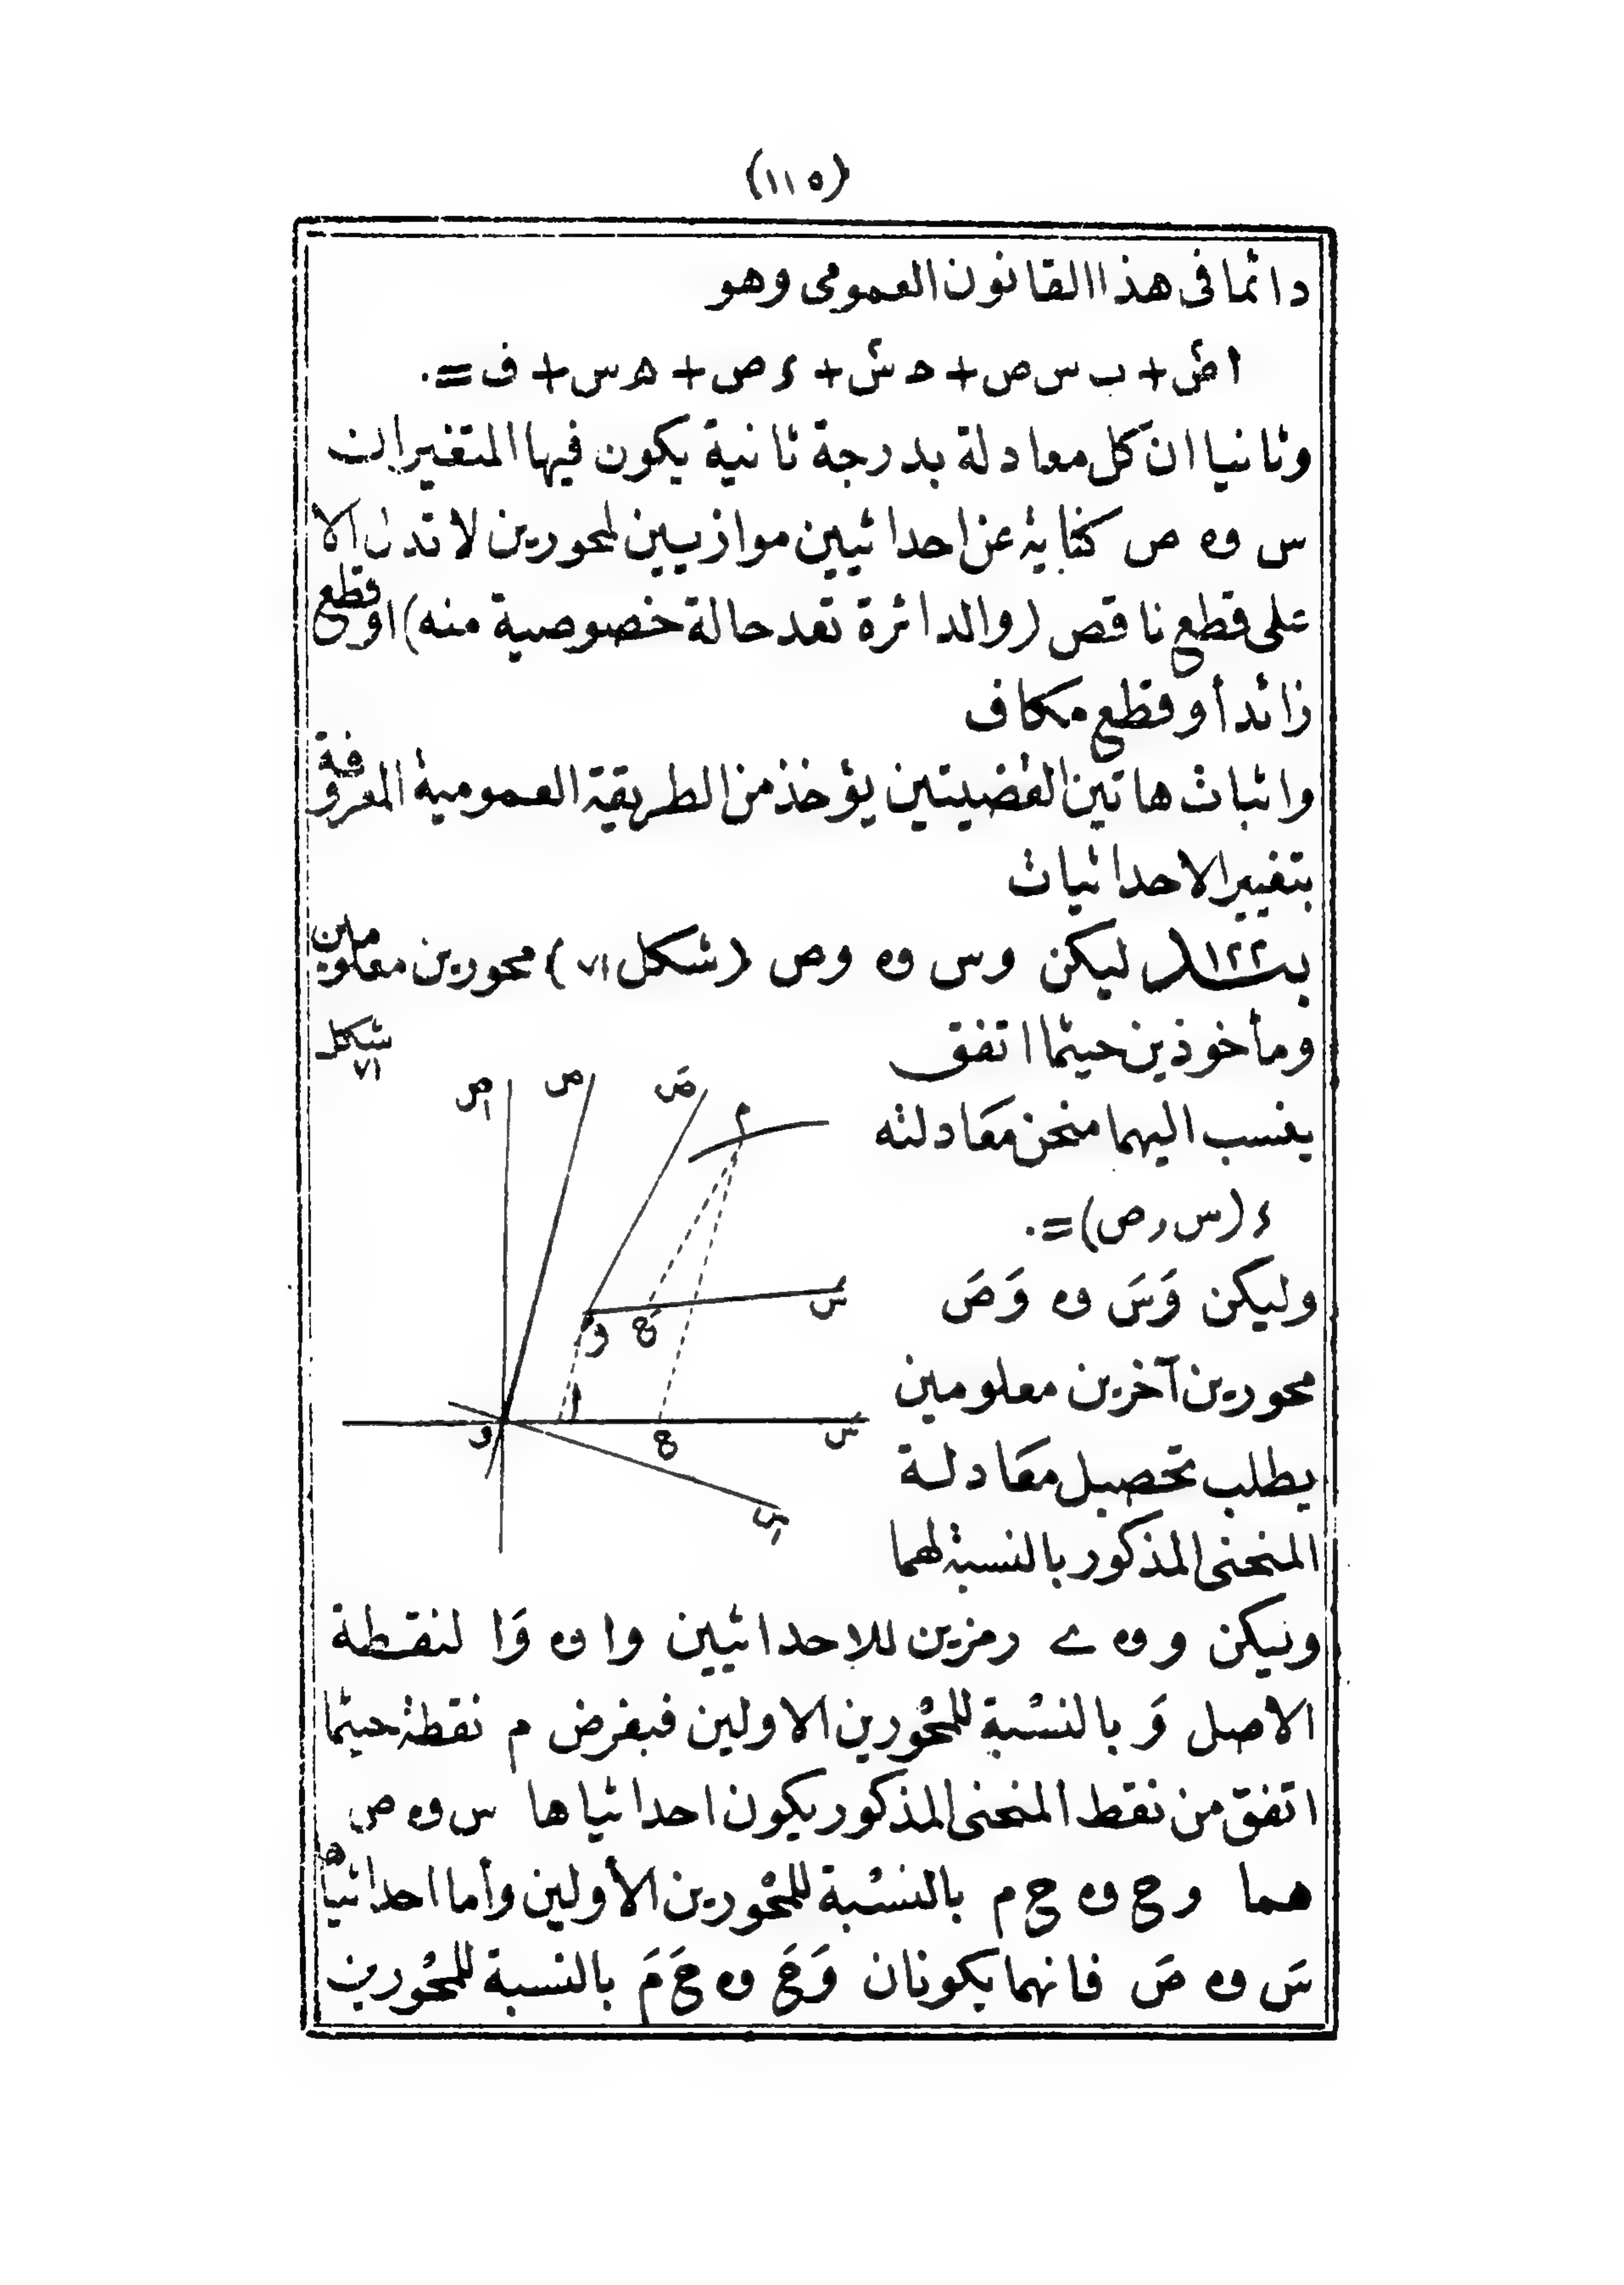 (١١٥)
دائما فى هذا القانون العمومى وهو
ا ص٢ + ب س ص + ح س٢ + ء ص + ه س + ف = ٠
وثانيا ان كل معادلة بدرجة ثانية يكون فيها المتغيران
س و ه ص كناية عن احداثيين موازيين لمحورين لا تدل الا
على قطع ناقص (والدائرة تعد حالة خصوصية منه) او قطع
زائد أو قطع مكاف
واثبات هاتين القضيتين يؤخذ من الطريقة العمومية المعروفة
بتغيير الاحداثيات
بند ١٢٢ ليكن وس و ه وص (شكل ٧١) محورين معلومين
ومأخوذين حيثما اتفق
شكل
٧١
ينسب اليهما منحن معادلته
ء (س , ص) = ٠
وليكن وَسَ و ه وَصَ
محورين آخرين معلومين
يطلب تحصيل معادلة
المنحنى المذكور بالنسبة لهما
ص١
ص
صَ
م
سَ
وَ
حَ
ا
و
ح
س
س١
وليكن و و ه ے رمزين للاحداثيين وا و ه وَا لنقطة
الاصل وَ بالنسبة للمحورين الاولين فبفرض م نقطة حيثما
اتفق من نقط المنحنى المذكور يكون احداثياها س و ه ص
هما وح و ه ح م بالنسبة للمحورين الأولين وأما احداثياها
سَ و ه صَ فانهما يكونان وَحَ و ه حَ مَ بالنسبة للمحورين